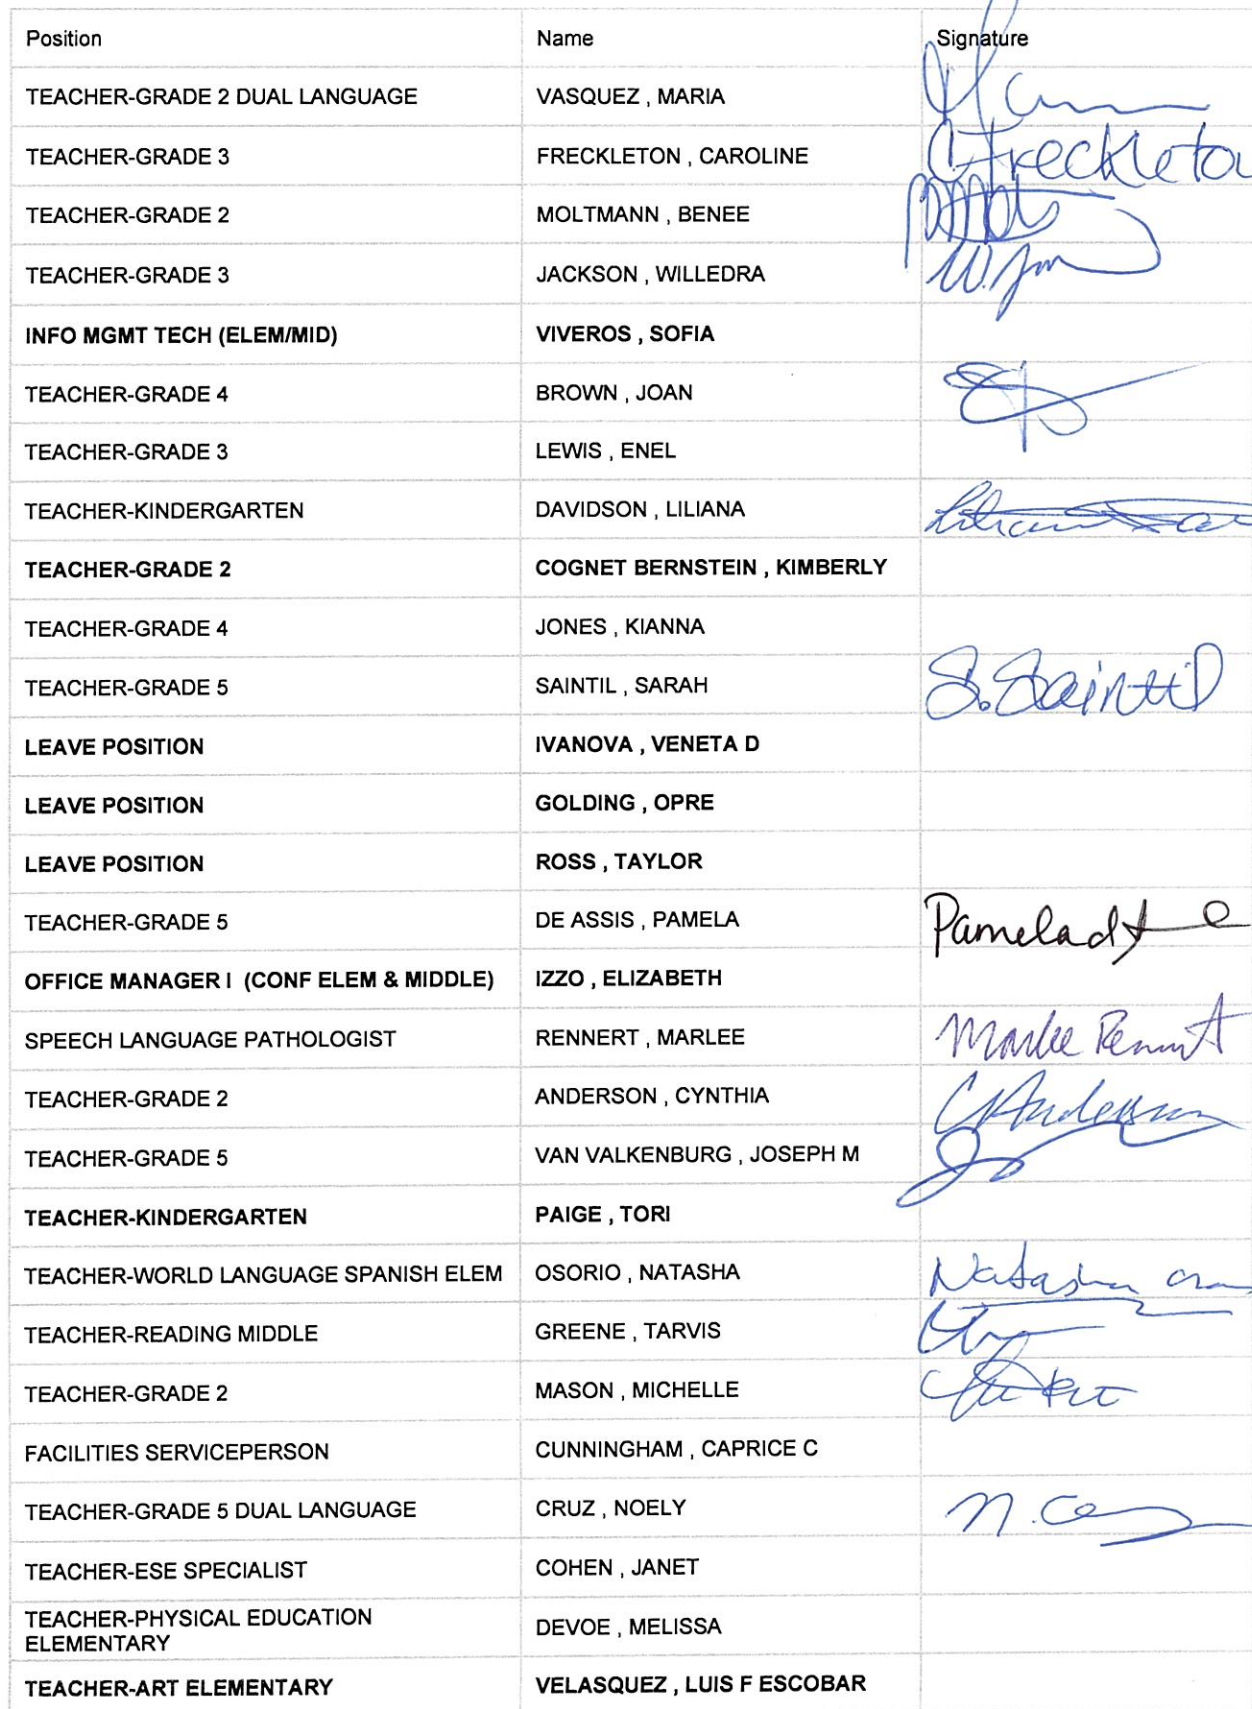 Position Name Signature
TEACHER-GRADE 2 DUAL LANGUAGE VASQUEZ , MARIA
TEACHER-GRADE 3 FRECKLETON , CAROLINE C. Freckleton
TEACHER-GRADE 2 MOLTMANN , BENEE
TEACHER-GRADE 3 JACKSON , WILLEDRA
INFO MGMT TECH (ELEM/MID) VIVEROS , SOFIA
TEACHER-GRADE 4 BROWN , JOAN
TEACHER-GRADE 3 LEWIS , ENEL
TEACHER-KINDERGARTEN DAVIDSON , LILIANA
TEACHER-GRADE 2 COGNET BERNSTEIN , KIMBERLY
TEACHER-GRADE 4 JONES , KIANNA
TEACHER-GRADE 5 SAINTIL , SARAH S. Saintil
LEAVE POSITION IVANOVA , VENETA D
LEAVE POSITION GOLDING , OPRE
LEAVE POSITION ROSS , TAYLOR
TEACHER-GRADE 5 DE ASSIS , PAMELA Pamela
OFFICE MANAGER I (CONF ELEM & MIDDLE) IZZO , ELIZABETH
SPEECH LANGUAGE PATHOLOGIST RENNERT , MARLEE Marlee Rennert
TEACHER-GRADE 2 ANDERSON , CYNTHIA C Anderson
TEACHER-GRADE 5 VAN VALKENBURG , JOSEPH M
TEACHER-KINDERGARTEN PAIGE , TORI
TEACHER-WORLD LANGUAGE SPANISH ELEM OSORIO , NATASHA Natasha
TEACHER-READING MIDDLE GREENE , TARVIS
TEACHER-GRADE 2 MASON , MICHELLE
FACILITIES SERVICEPERSON CUNNINGHAM , CAPRICE C
TEACHER-GRADE 5 DUAL LANGUAGE CRUZ , NOELY
TEACHER-ESE SPECIALIST COHEN , JANET
TEACHER-PHYSICAL EDUCATION
ELEMENTARY DEVOE , MELISSA
TEACHER-ART ELEMENTARY VELASQUEZ , LUIS F ESCOBAR